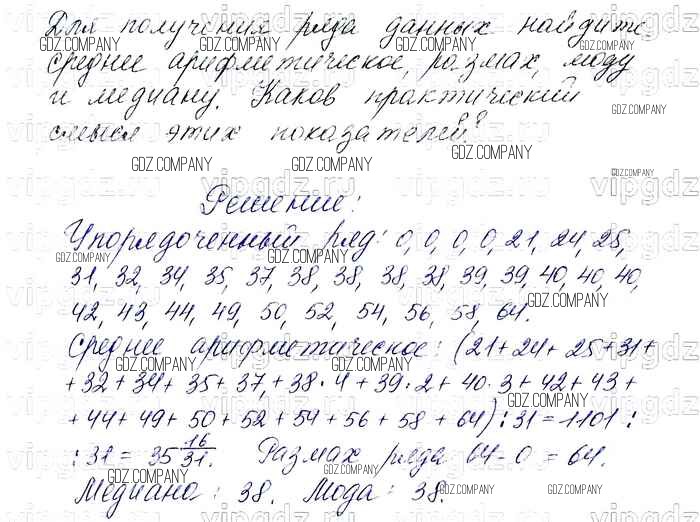 Для получения ряда данных найдите
среднее арифметическое, размах, моду
и медиану. Каков практический
смысл этих показателей?
Решение:
Упорядоченный ряд: 0, 0, 0, 0, 21, 24, 25,
31, 32, 34, 35, 37, 38, 38, 38, 38, 39, 39, 40, 40, 40,
42, 43, 44, 49, 50, 52, 54, 56, 58, 64.
Среднее арифметическое: (21+24+25+31+
+32+34+35+37+38·4+39·2+40·3+42+43+
+44+49+50+52+54+56+58+64):31=1101:
:31=35 16/31. Размах ряда 64-0=64.
Медиана: 38. Мода: 38.
GDZ.COMPANY
vipgdz.ru